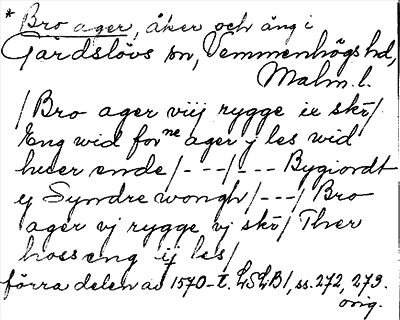 * Bro ager, åker och äng i
Gärdslövs sn, Vemmenhögs hd,
Malm. l.
/Bro ager viij rygge ix skr/
Eng wid forne ager j les wid
huer ende/---/---Bygiordt
ej Syndre wongh/---/Bro
ager vj rygge vj skr/Ther
hoss eng ij les/
förra delen av 1570-t. LSLB1, ss. 272, 273.
orig.